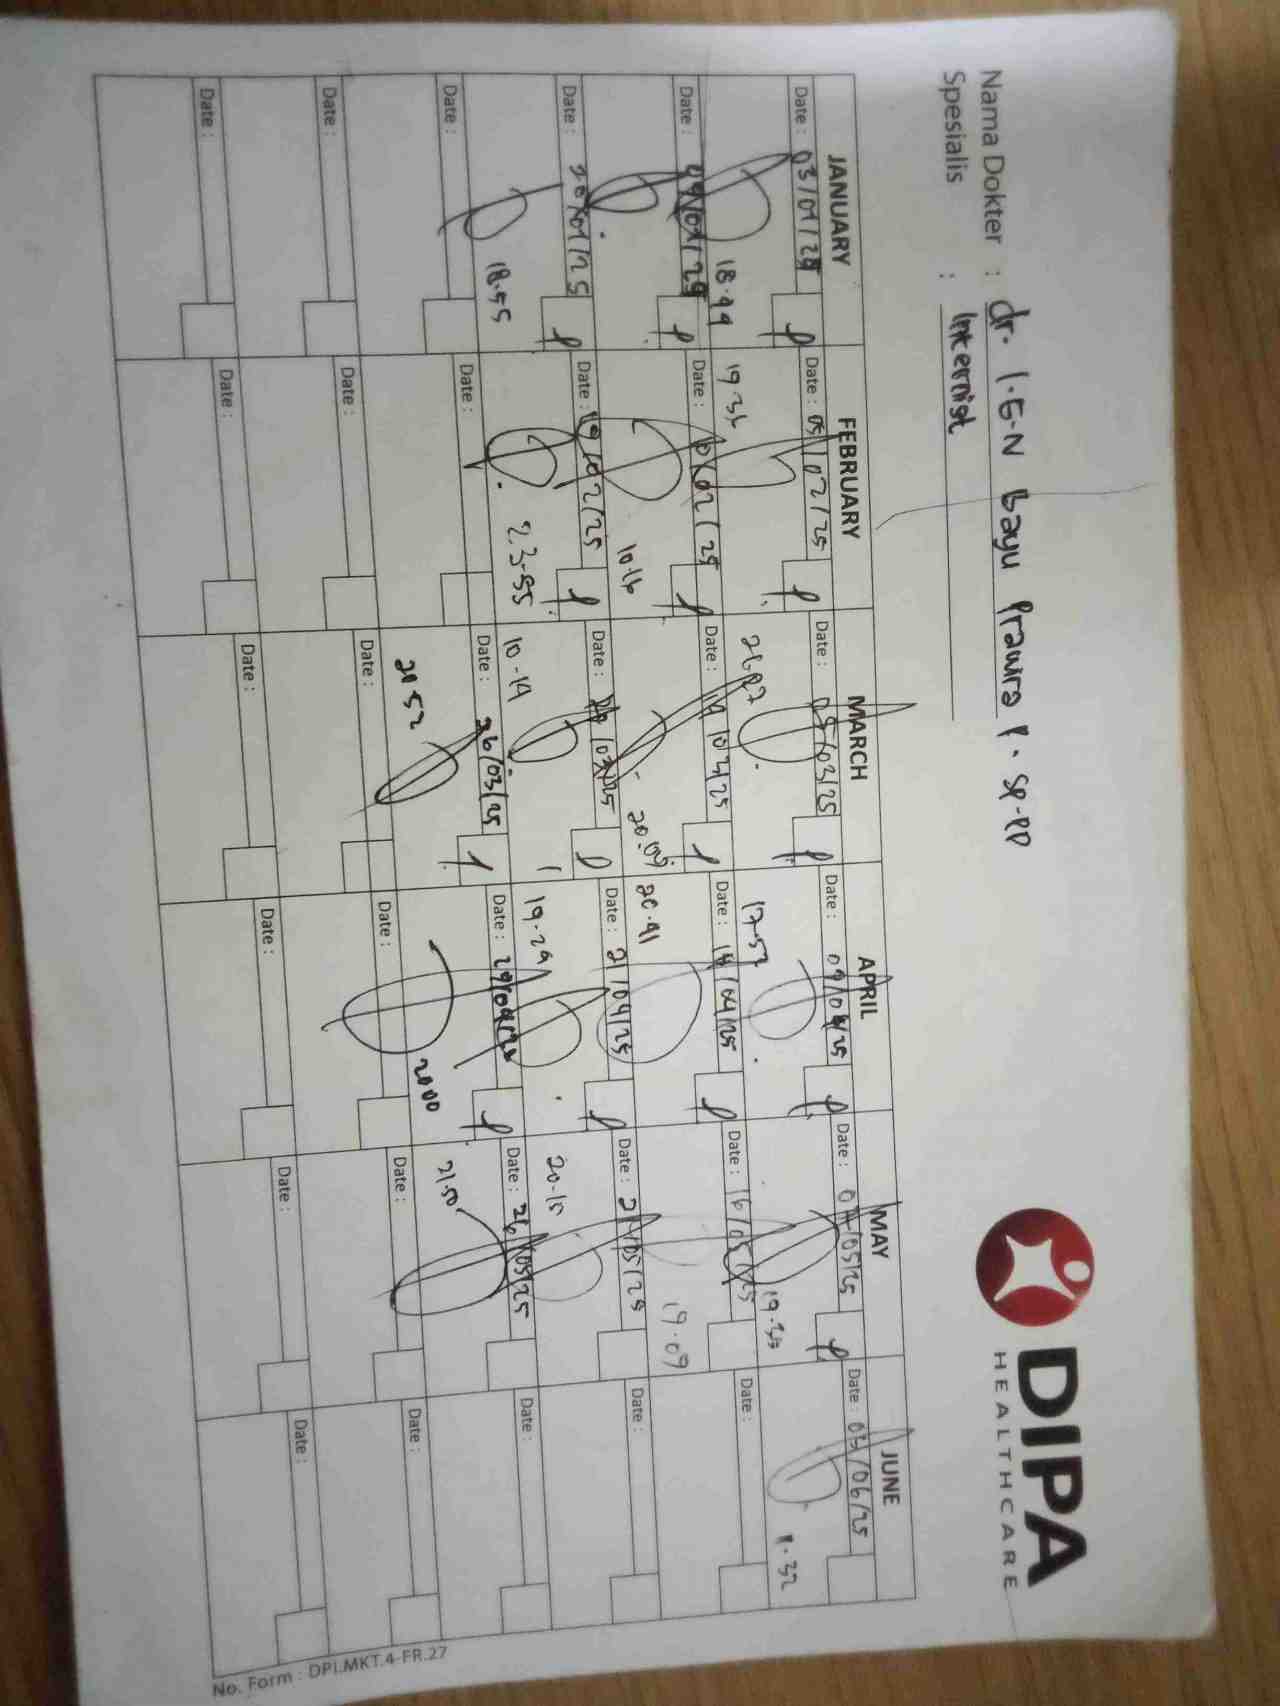 Nama Dokter : dr. I.G.N Bayu Prawira P. Sp.PD
Spesialis : Internist
DIPA
HEALTHCARE
JANUARY FEBRUARY MARCH APRIL MAY JUNE
Date : 03/01/25 Date : 05/02/25 Date : 05/03/25 Date : 09/04/25 Date : 07/05/25 Date : 03/06/25
18.44 19.36 17.57
Date : 09/01/25 Date : 10/02/25 Date : 14/03/25 Date : 14/04/25 Date : 16/05/25 Date :
10.16 20.09 20.41 19.09
Date : 20/01/25 Date : 19/02/25 Date : 20/03/25 Date : 21/04/25 Date : 21/05/25 Date :
18.55 23.55 10.14 19.29 20.15
Date : Date : Date : 26/03/25 Date : 29/04/25 Date : 26/05/25 Date :
20.52 20.00 21.50
Date : Date : Date : Date : Date : Date :
Date : Date : Date : Date : Date : Date :
No. Form : DPI.MKT.4-FR.27